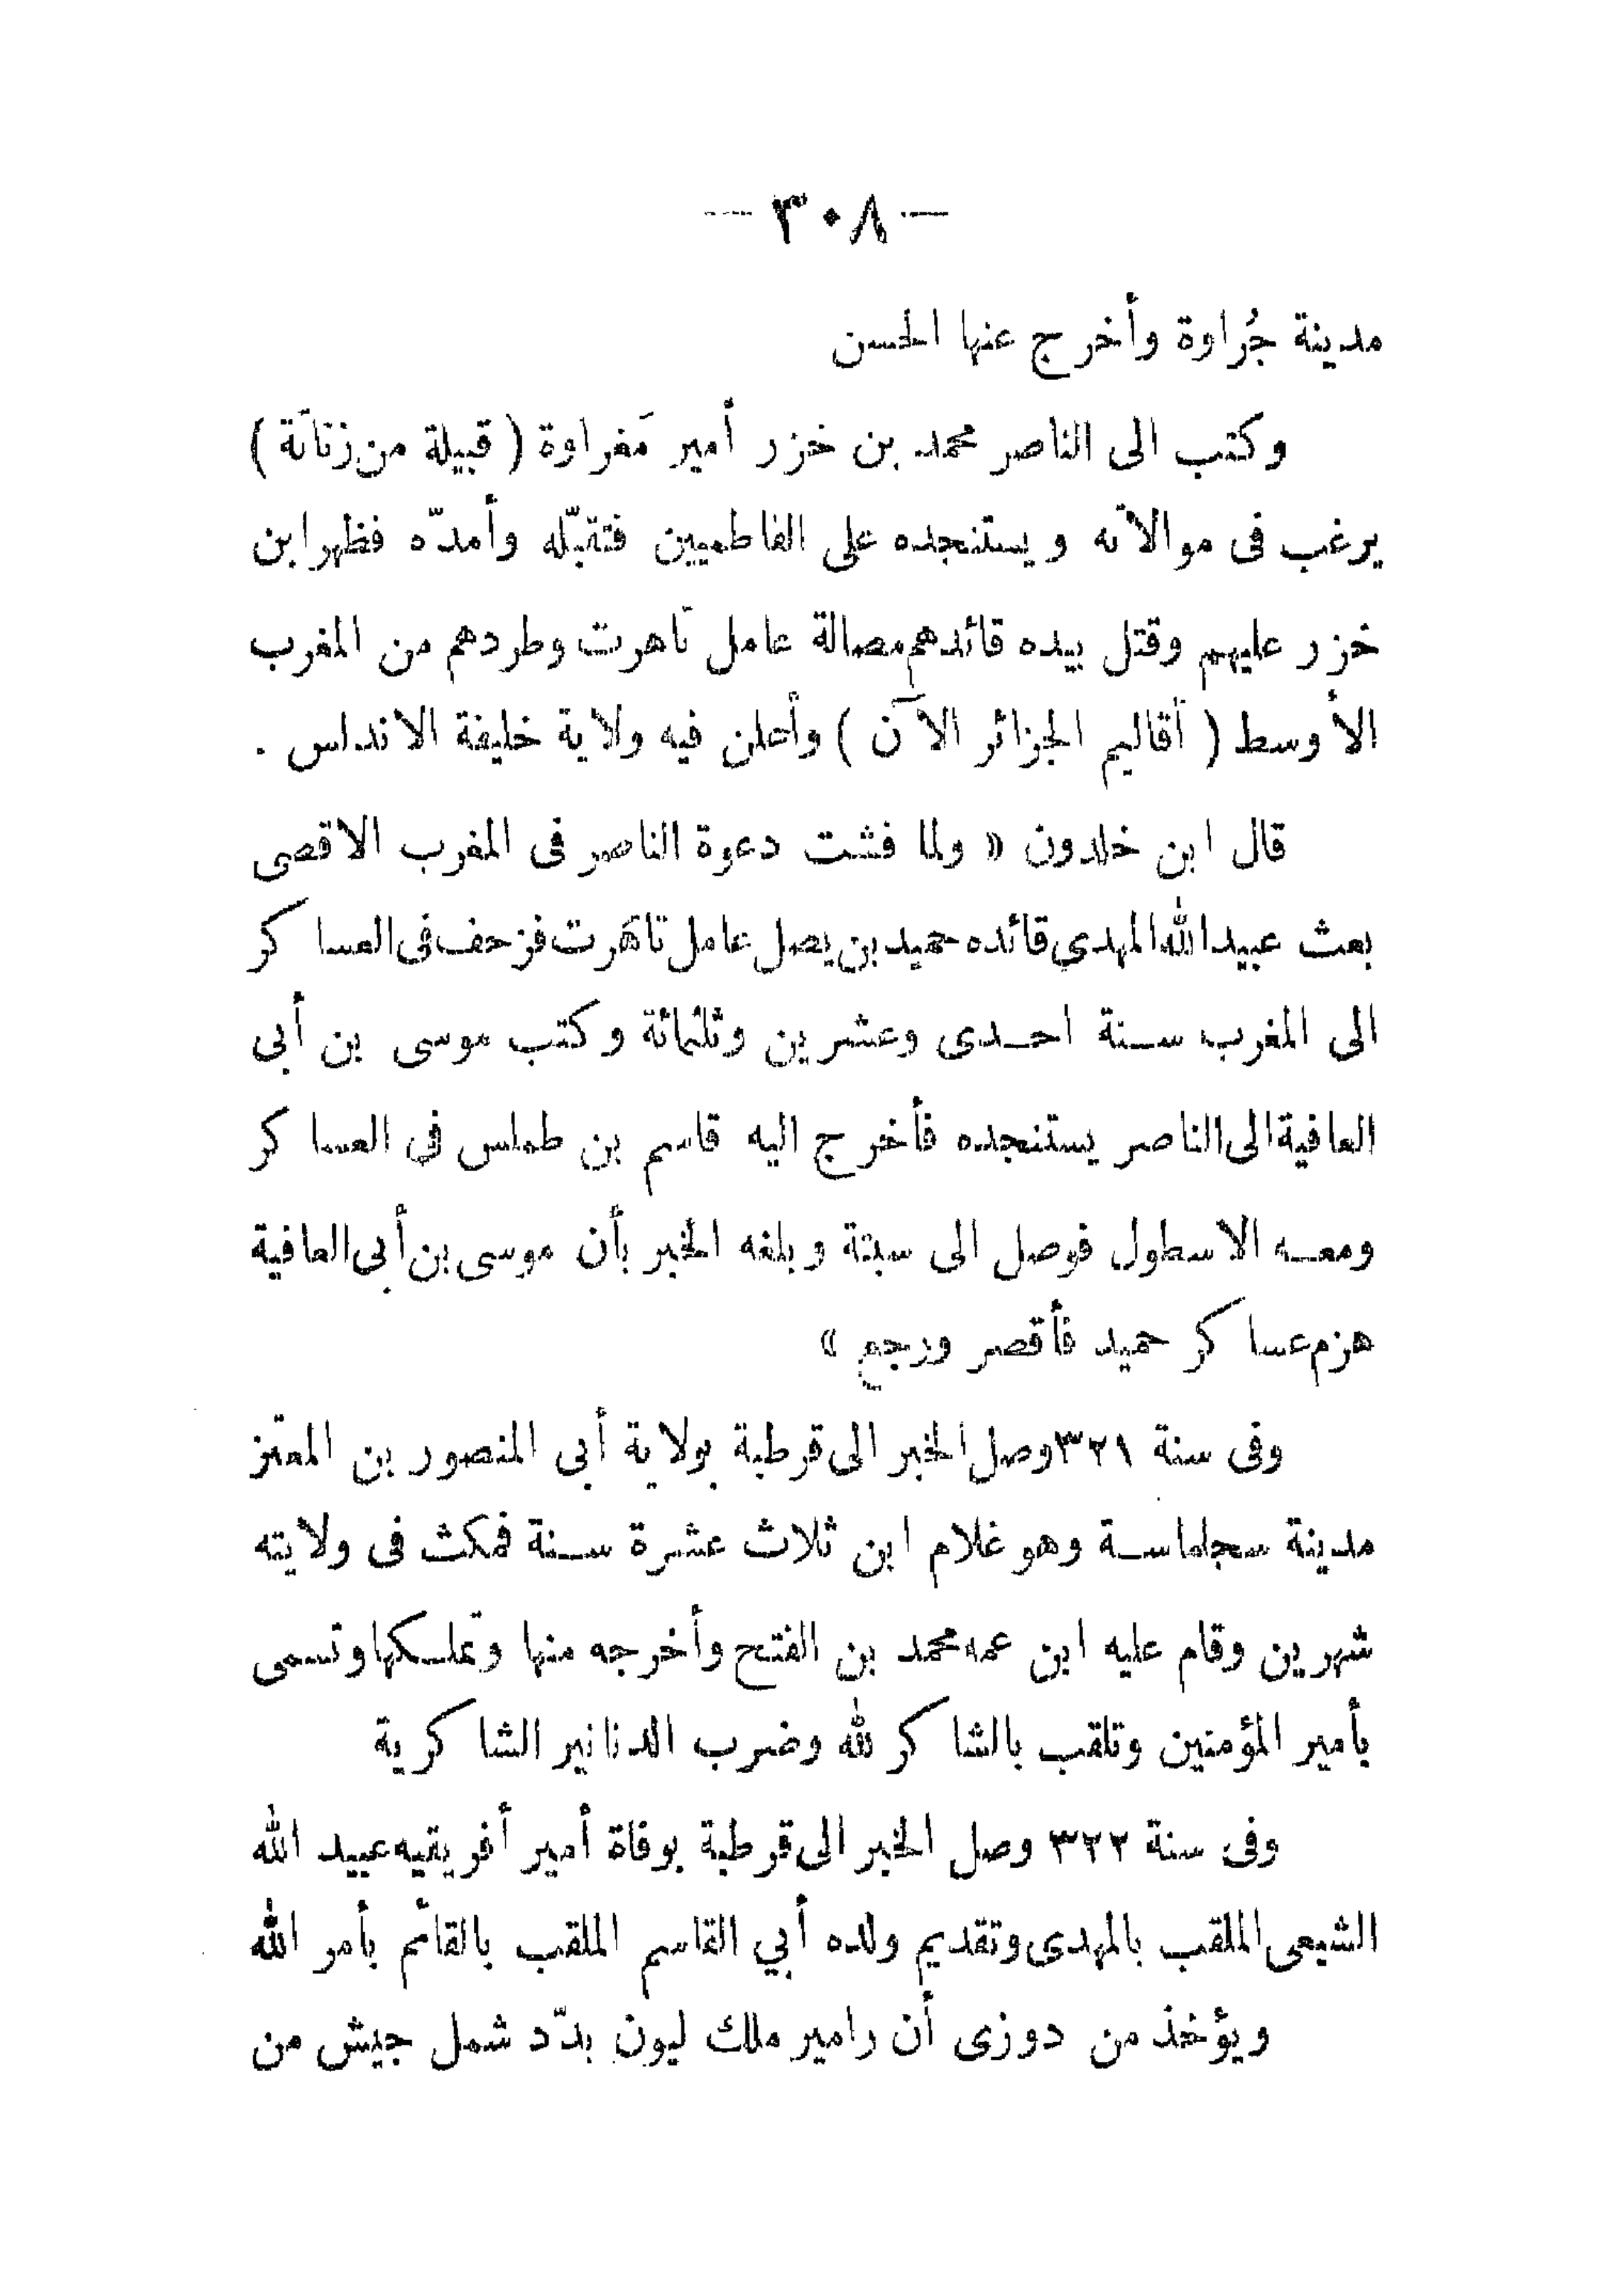 — ٣٠٨ —
مدينة جُراوة وأخرج عنها الحسن
وكتب الى الناصر محمد بن خزر أمير مَغراوة ( قبيلة من زناتَة )
يرغب فى موالاته ويستنجده على الفاطميين فتقبّله وأمدّه فظهر ابن
خزر عليهم وقتل بيده قائدهم مصالة عامل تَاهرت وطردهم من المغرب
الأوسط ( أقاليم الجزائر الآن ) وأعلن فيه ولاية خليفة الاندلس .
قال ابن خلدون « ولما فشت دعوة الناصر فى المغرب الاقصى
بعث عبيد الله المهدي قائده حميد بن يصل عامل تاهَرت فزحف فى العساكر
الى المغرب سنة احدى وعشرين وثلثمائة وكتب موسى بن أبى
العافية الى الناصر يستنجده فأخرج اليه قاسم بن طملس فى العساكر
ومعه الاسطول فوصل الى سبتة وبلغه الخبر بأن موسى بن أبى العافية
هزم عساكر حميد فأقصر ورجع »
وفى سنة ٣٢١ وصل الخبر الى قرطبة بولاية أبى المنصور بن المعتز
مدينة سجلماسة وهو غلام ابن ثلاث عشرة سنة فمكث فى ولايته
شهرين وقام عليه ابن عمه محمد بن الفتح وأخرجه منها وتملكها وتسمى
بأمير المؤمنين وتلقب بالشاكر لله وضرب الدنانير الشاكرية
وفى سنة ٣٢٢ وصل الخبر الى قرطبة بوفاة أمير أفريقيه عبيد الله
الشيعى الملقب بالمهدى وتقديم ولده أبي القاسم الملقب بالقائم بأمر الله
ويؤخذ من دوزى أن رامير ملك ليون بدّد شمل جيش من